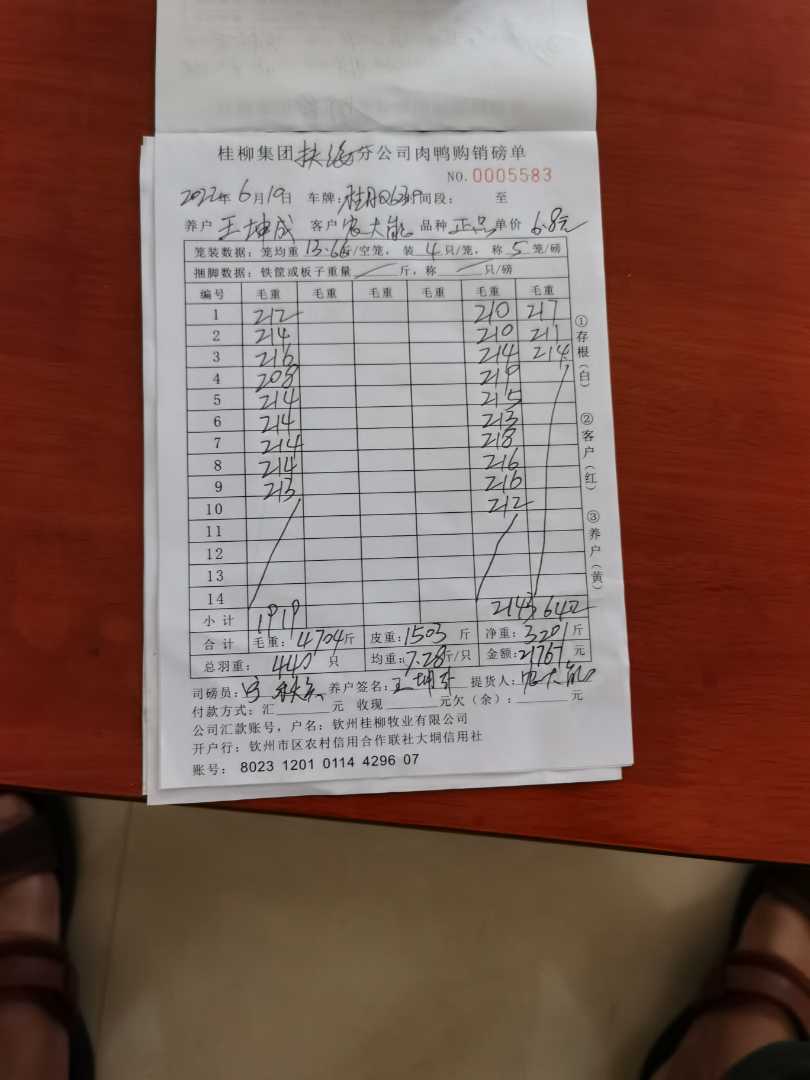 桂柳集团扶绥分公司肉鸭购销磅单
NO.0005583
2022年6月19日 车牌: 时间段: 至
养户 王坤成 客户 农大能 品种 正品 单价 6.8元
笼装数据:笼均重 13.66斤/空笼,装 4 只/笼,称 5 笼/磅
捆脚数据:铁筐或板子重量 斤,称 只/磅
编号 毛重 毛重 毛重 毛重 毛重 毛重
1 212 210 217
2 214 210 211
3 216 214 214
4 208 219
5 214 215
6 214 213
7 214 218
8 214 216
9 213 216
10 212
11
12
13
14
小计 1919 2143 642
合计 毛重:4704斤 皮重:1503 斤 净重:3201斤
总羽重: 440 只 均重:7.28斤/只 金额:21767元
司磅员: 养户签名:王坤成 提货人:农大能
付款方式:汇 元 收现 元欠(余): 元
公司汇款账号,户名:钦州桂柳牧业有限公司
开户行:钦州市区农村信用合作联社大垌信用社
账号: 8023 1201 0114 4296 07
①存根(白)
②客户(红)
③养户(黄)